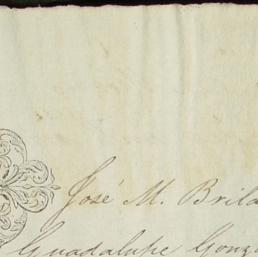 José M. Brila
Guadalupe Gonz